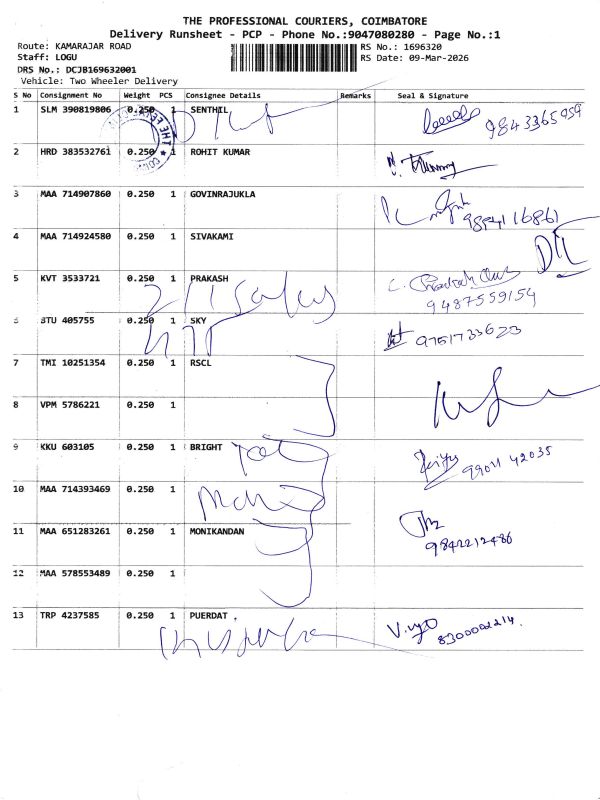 THE PROFESSIONAL COURIERS, COIMBATORE
Delivery Runsheet - PCP - Phone No.:9047080280 - Page No.:1
Route: KAMARAJAR ROAD RS No.: 1696320
Staff: LOGU RS Date: 09-Mar-2026
DRS No.: DCJB169632001
Vehicle: Two Wheeler Delivery
S No Consignment No Weight PCS Consignee Details Remarks Seal & Signature
1 SLM 390819806 0.250 1 SENTHIL
9843365959
2 HRD 383532761 0.250 1 ROHIT KUMAR
3 MAA 714907860 0.250 1 GOVINRAJUKLA
9894116861
4 MAA 714924580 0.250 1 SIVAKAMI
5 KVT 3533721 0.250 1 PRAKASH
9487559154
6 BTU 405755 0.250 1 SKY
9751733623
7 TMI 10251354 0.250 1 RSCL
8 VPM 5786221 0.250 1
9 KKU 603105 0.250 1 BRIGHT
99011 42035
10 MAA 714393469 0.250 1
11 MAA 651283261 0.250 1 MONIKANDAN
9842212486
12 MAA 578553489 0.250 1
13 TRP 4237585 0.250 1 PUERDAT .
8300002214.